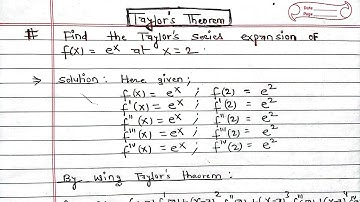 Taylor's Theorem
Date
Page
# Find the Taylor's series expansion of
f(x) = eˣ at x = 2.
⇒ Solution: Here given;
f(x) = eˣ ; f(2) = e²
f'(x) = eˣ ; f'(2) = e²
f''(x) = eˣ ; f''(2) = e²
f'''(x) = eˣ ; f'''(2) = e²
f'ᵛ(x) = eˣ ; f'ᵛ(2) = e²
By using Taylor's theorem: